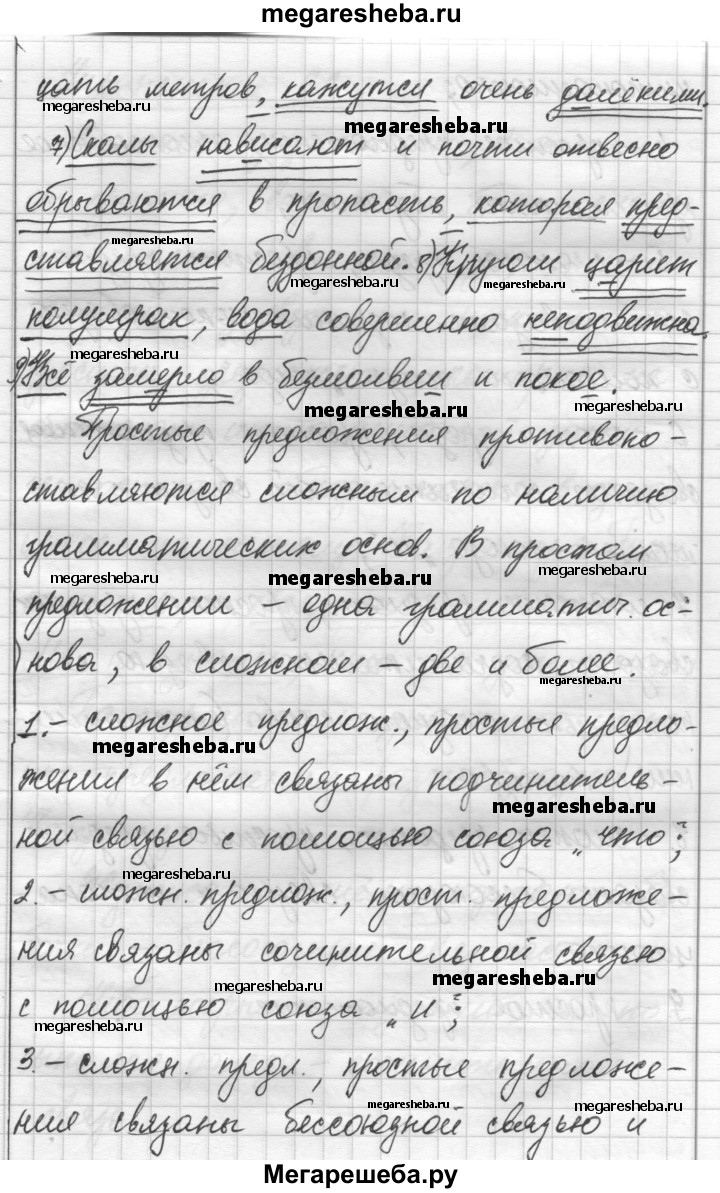 megaresheba.ru
цать метров, кажутся очень далёкими.
7) Скалы нависают и почти отвесно
обрываются в пропасть, которая пред-
ставляется бездонной. 8) Кругом царит
полумрак, вода совершенно неподвижна.
9) Всё замерло в безмолвии и покое.
Простые предложения противопо-
ставляются сложным по наличию
грамматических основ. В простом
предложении – одна грамматич. ос-
нова, в сложном – две и более.
1. – сложное предлож., простые предло-
жения в нём связаны подчинитель-
ной связью с помощью союза „что“;
2. – сложн. предлож., прост. предложе-
ния связаны сочинительной связью
с помощью союза „и“;
3. – сложн. предл., простые предложе-
ния связаны бессоюзной связью и
Мегарешеба.ру